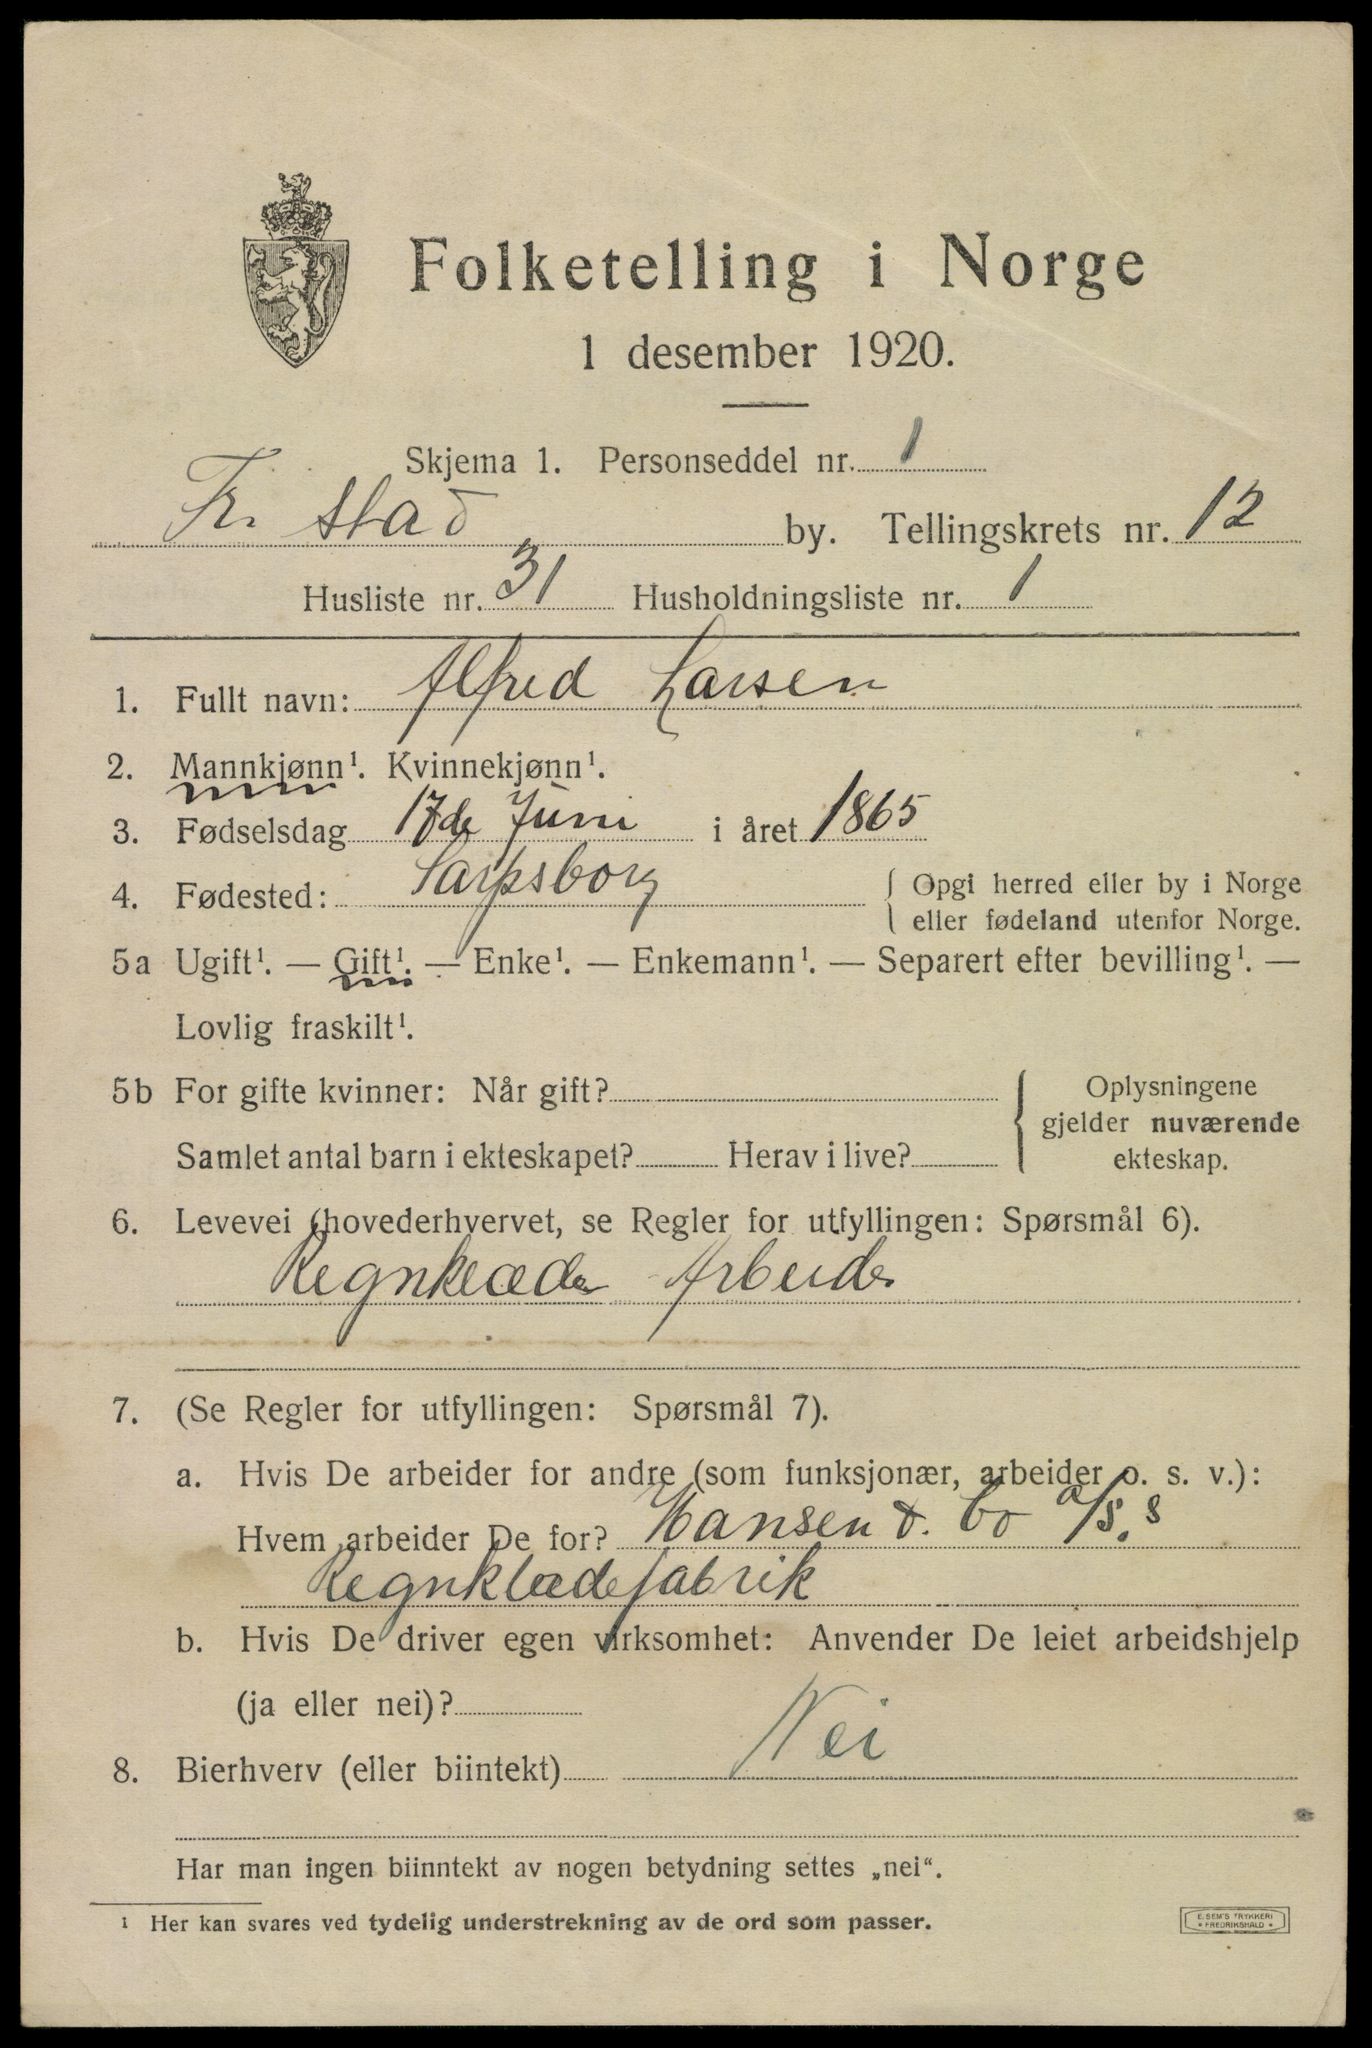 Folketelling i Norge
1 desember 1920.
Skjema 1. Personseddel nr. 1
Fr. stad by. Tellingskrets nr. 12
Husliste nr. 31 Husholdningsliste nr. 1
1. Fullt navn: Alfred Larsen
2. Mannkjønn¹. Kvinnekjønn¹.
3. Fødselsdag 17de Juni i året 1865
4. Fødested: Sarpsborg { Opgi herred eller by i Norge
eller fødeland utenfor Norge.
5a Ugift¹. — Gift¹. — Enke¹. — Enkemann¹. — Separert efter bevilling¹. —
Lovlig fraskilt¹.
5b For gifte kvinner: Når gift? { Oplysningene
gjelder nuværende
Samlet antal barn i ekteskapet? Herav i live? ekteskap.
6. Levevei (hovederhvervet, se Regler for utfyllingen: Spørsmål 6).
Regnklæde Arbeider
7. (Se Regler for utfyllingen: Spørsmål 7).
a. Hvis De arbeider for andre (som funksjonær, arbeider o. s. v.):
Hvem arbeider De for? Hansen & Co A/S.s
Regnklædefabrik
b. Hvis De driver egen virksomhet: Anvender De leiet arbeidshjelp
(ja eller nei)?
8. Bierhverv (eller biintekt) Nei
Har man ingen biinntekt av nogen betydning settes „nei“.
¹ Her kan svares ved tydelig understrekning av de ord som passer.
E. SEM'S TRYKKERI
• FREDRIKSHALD •